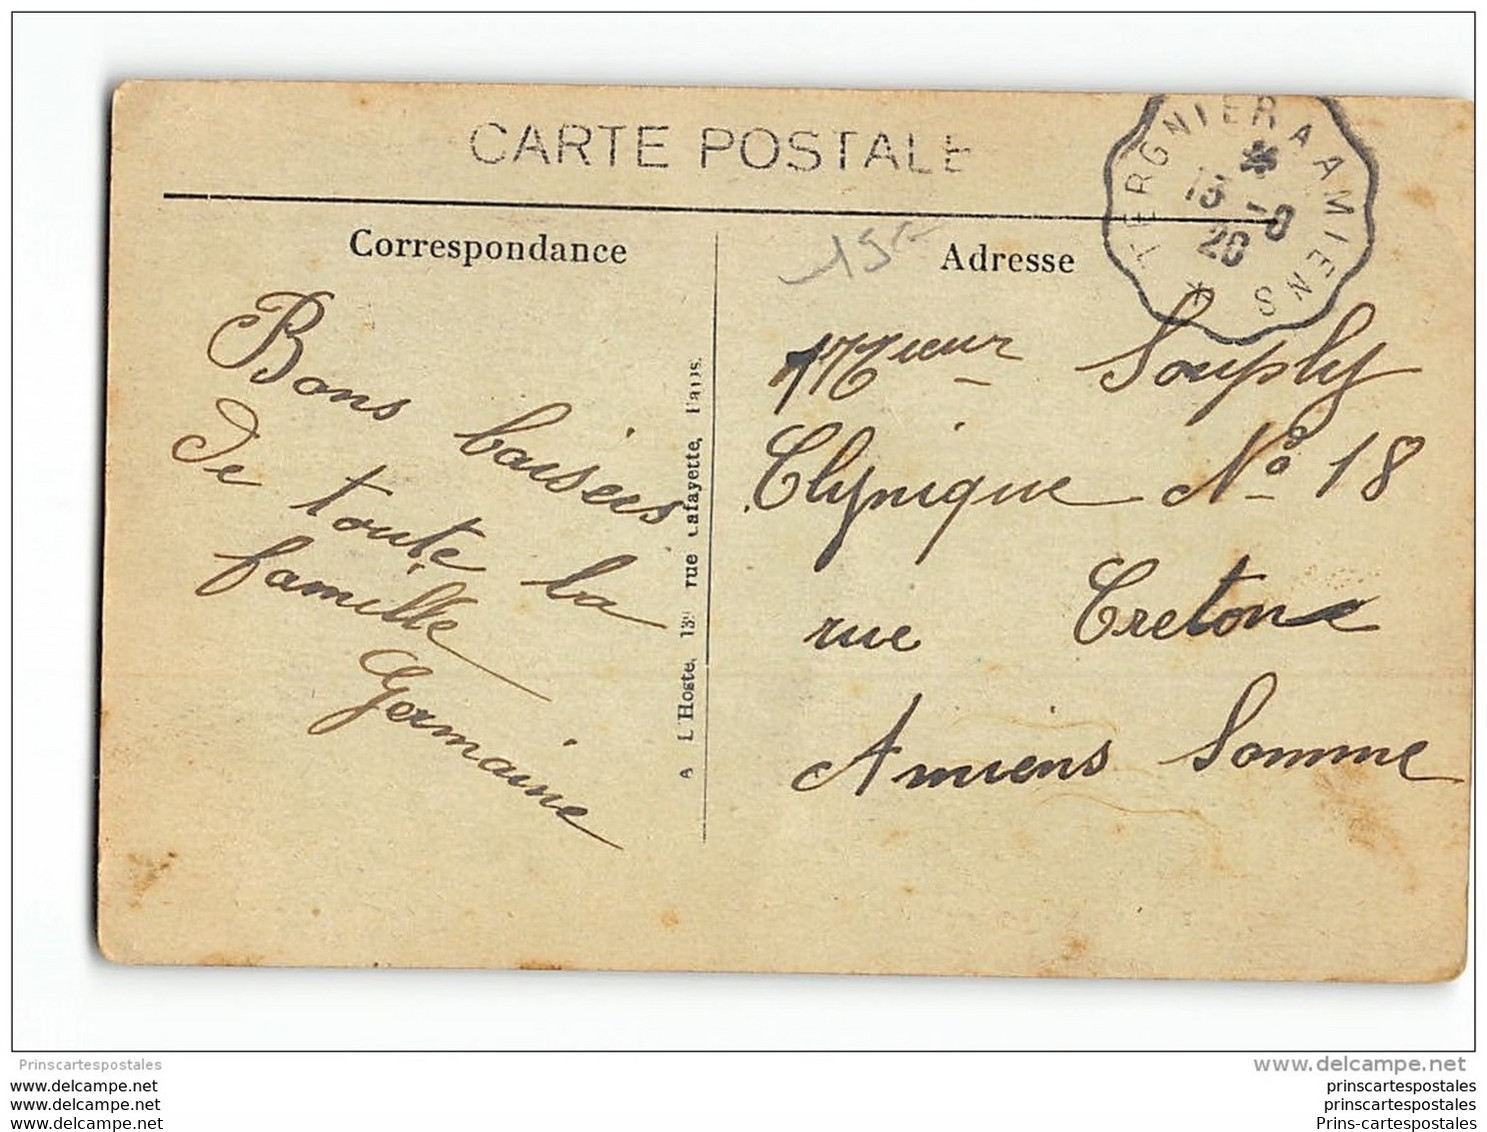 CARTE POSTALE
TERGNIER A AMIENS
20
Correspondance
Adresse
Bons baisers
De toute la
famille
Germaine
L'Hoste, rue Lafayette, Paris.
Mr Souply
Clynique No 18
rue Cretone
Amiens Somme
Prinscartespostales
www.delcampe.net
www.delcampe.net
www.delcampe.net
www.delcampe.net
prinscartespostales
prinscartespostales
Prins-cartespostales